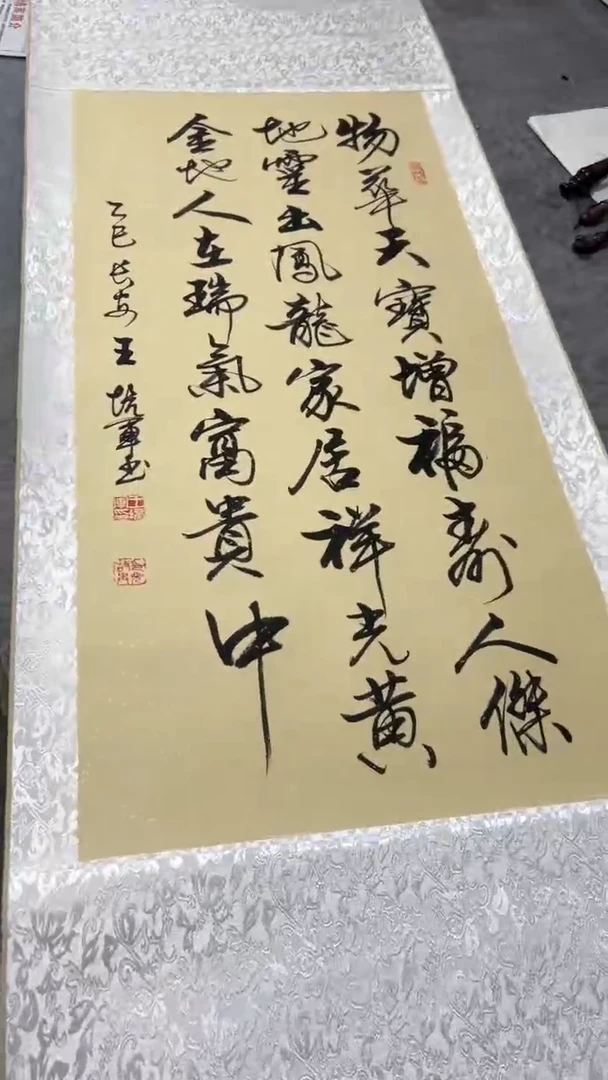 物華天寶增福壽人傑
地靈出鳳龍家居祥光黄
金地人在瑞氣富貴中
乙巳长安王培軍书